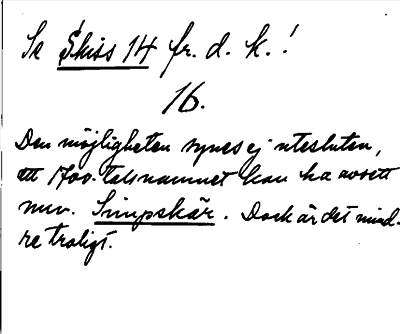 Se Skiss 14 fr. d. k.!
16.
Den möjligheten synes ej utesluten,
att 1700-talsnamnet kan ha avsett
nuv. Simpskär. Dock är det mind-
re troligt.